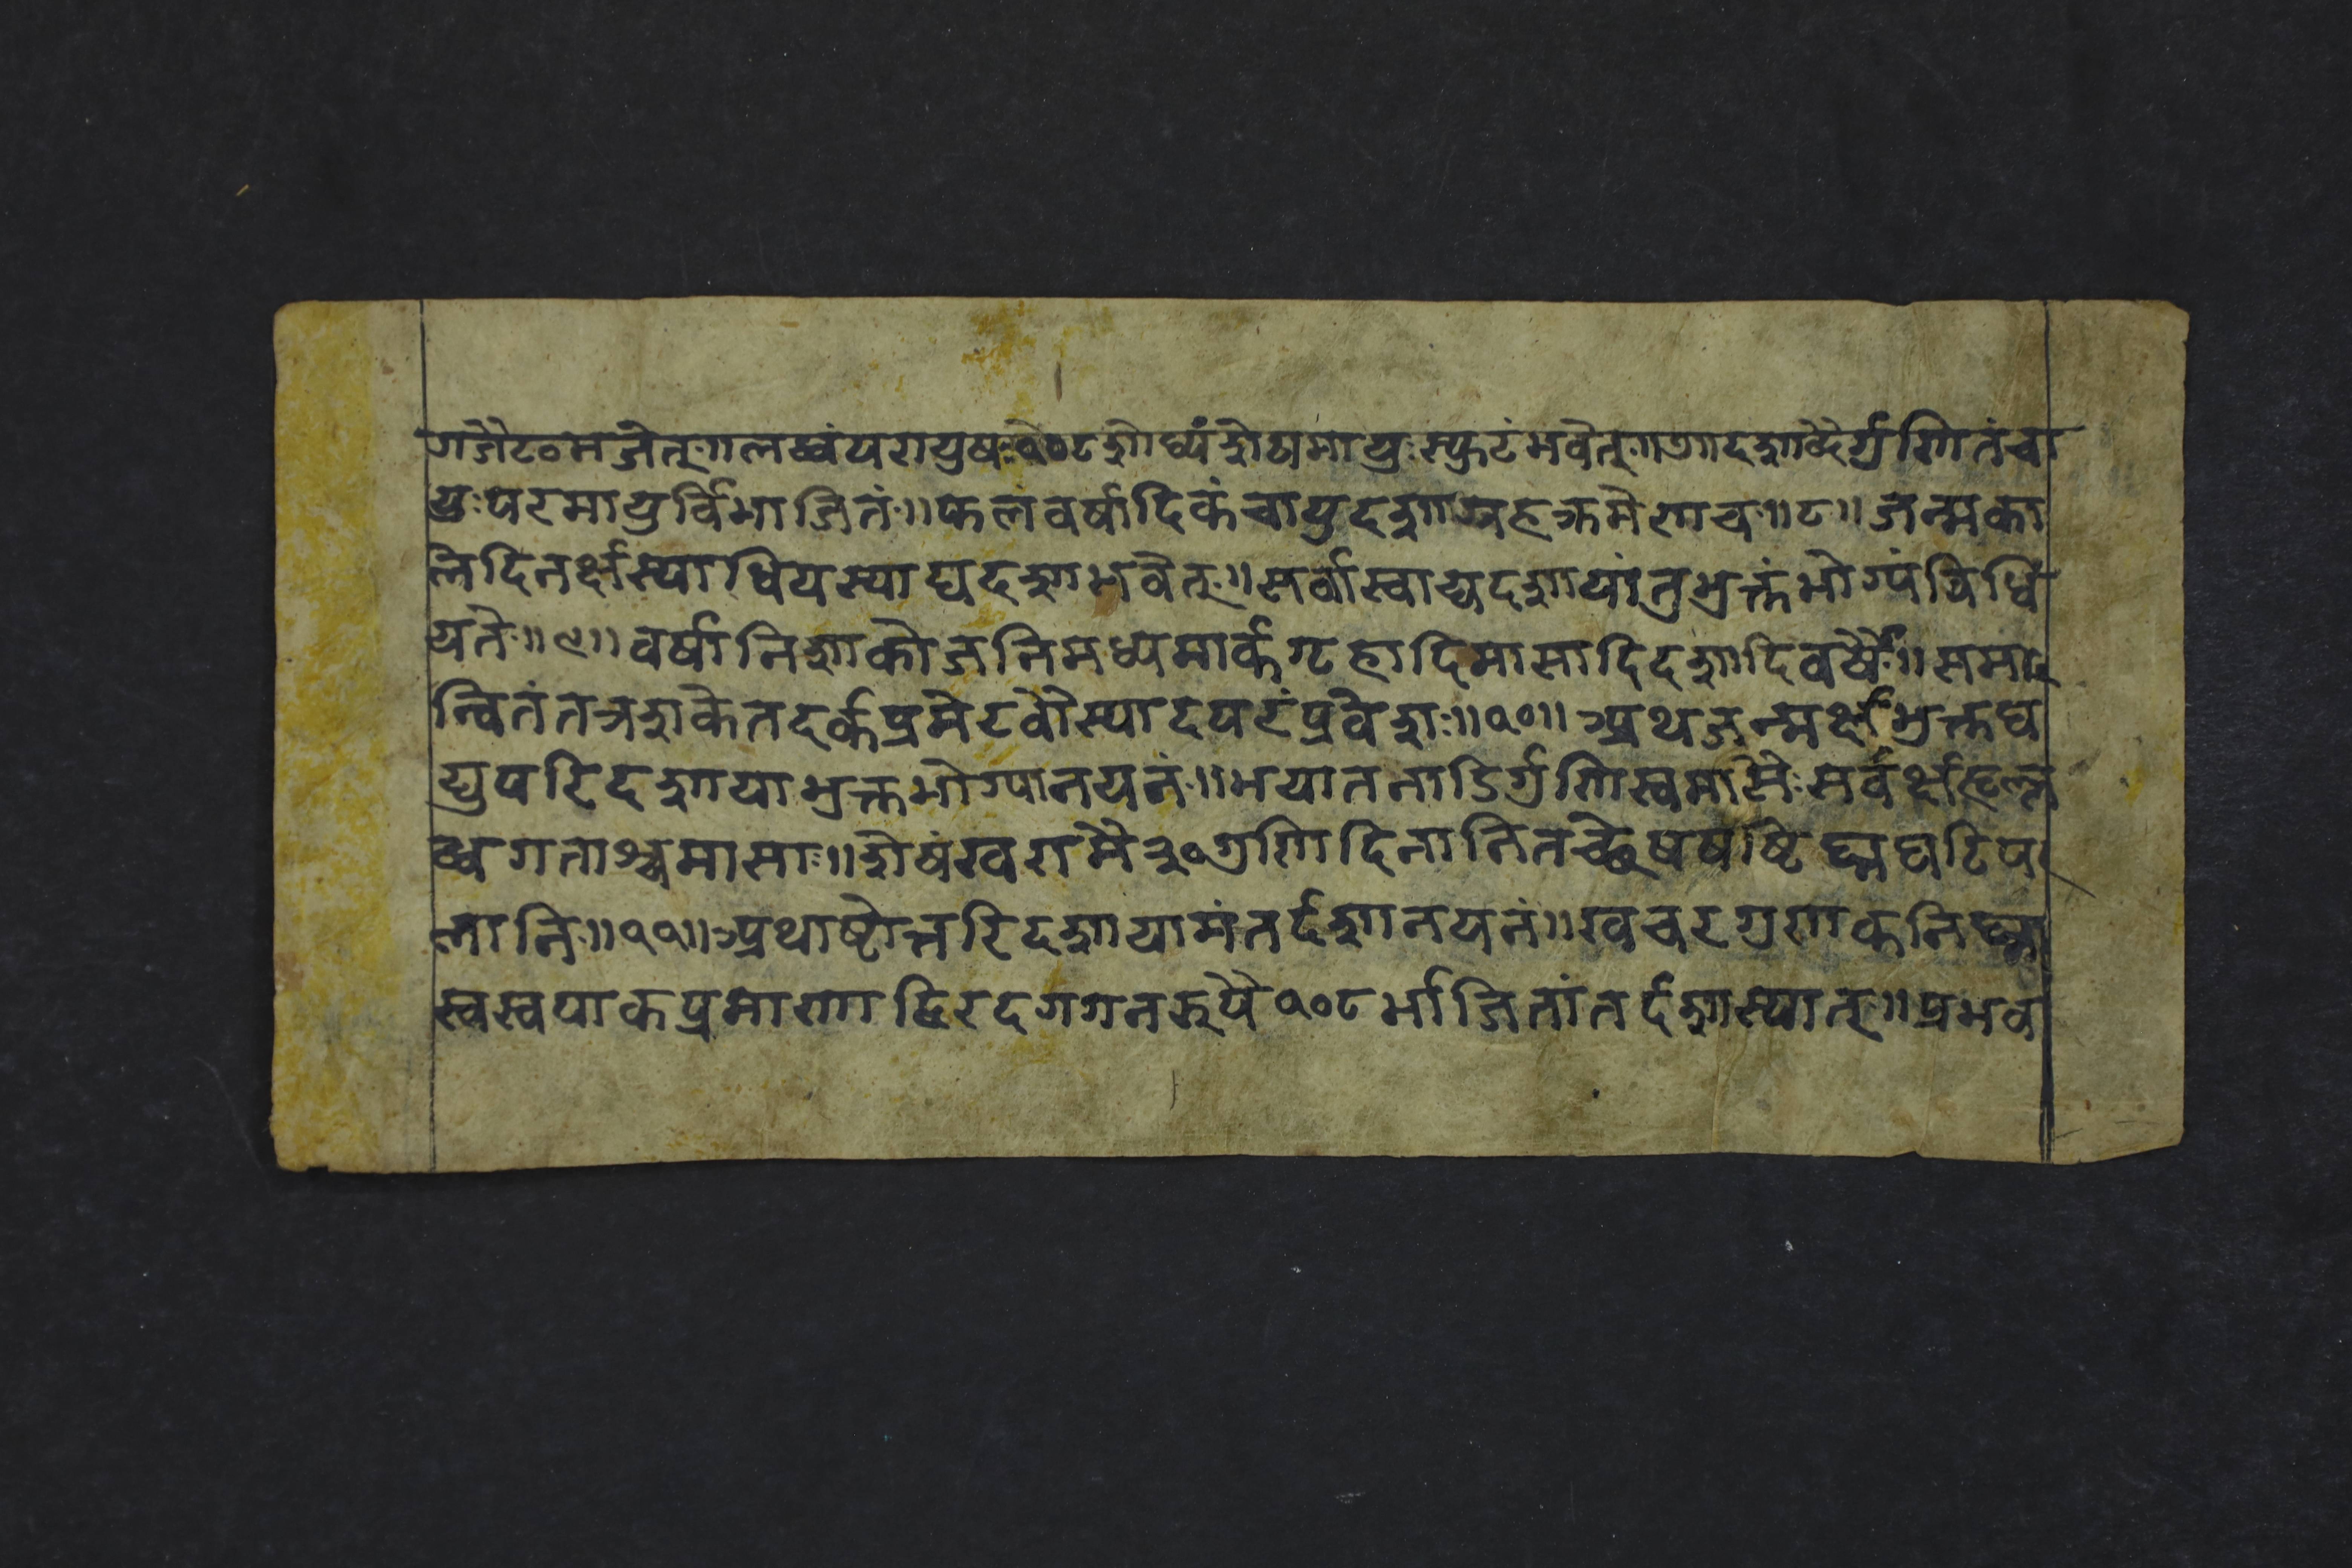 गजै ८० म जेत्॥ लब्धं परायुषः १०८ शोध्यं शेषमायुः स्फुटं भवेत्॥ ७॥ दशाब्दैर्गुणितं चा
युः परमायुर्विभाजितं॥ फलं वर्षादिकं चायुदशा ग्रहक्रमेण च॥ ८॥ जन्मका
ले दिनर्क्षस्याधिपस्याद्य दशा भवेत्॥ सर्वास्वाद्यदशायां तु भुक्तं भोग्यं विधि
यते॥ ९॥ वर्षानि शाको जनिमध्यमार्क गृहादिमासादि दशादिवर्षैः॥ समा
न्वितं तत्र शके तदर्कप्रमे रवौ स्यादपरं प्रवेशः॥ १०॥ अथ जन्मर्क्ष भुक्तघ
द्युपरि दशाया भुक्तभोग्यानयनं॥ भयातनाडिर्गुणि स्वमासैः सर्वर्क्ष
ब्ध गताश्च मासाः॥ शेषं खरामै ३० गुणि दिनानि तच्छेष षष्टि घ्न घटि प
लानि॥ ११॥ अथाष्टोत्तरि दशायामंतर्दशानयनं॥ खचरगुणक निघ्ना
स्वस्वपाकप्रमाणा द्विरदगगनरूपै १०८ र्भाजितांतर्दशा स्यात्॥ प्रभव